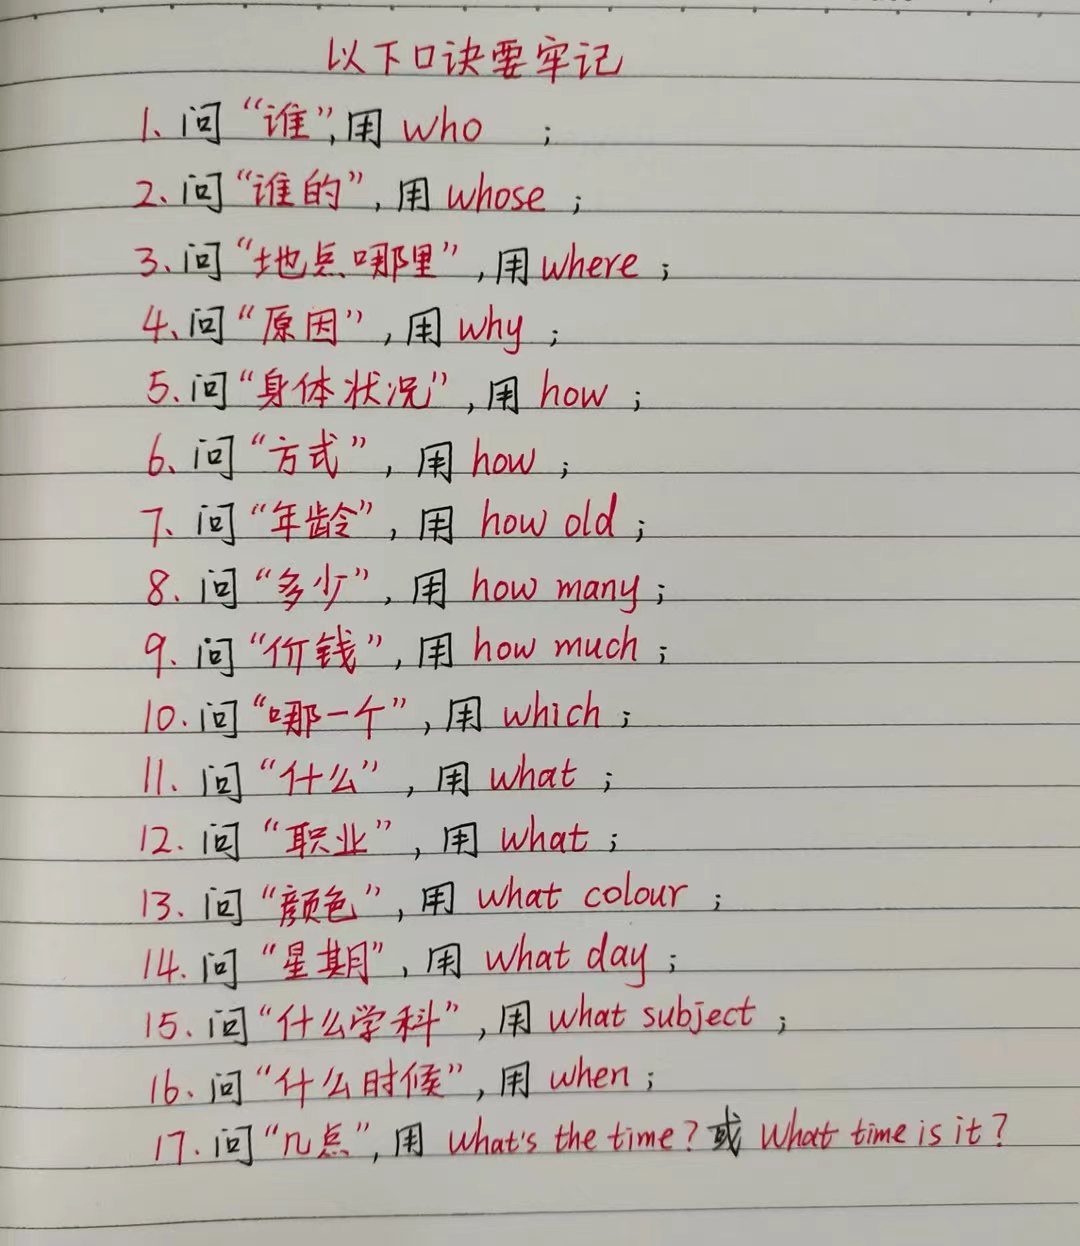 以下口诀要牢记
1、问“谁”,用 who ;
2、问“谁的”,用 whose ;
3、问“地点哪里”,用 where ;
4、问“原因”,用 why ;
5、问“身体状况”,用 how ;
6、问“方式”,用 how ;
7、问“年龄”,用 how old ;
8、问“多少”,用 how many ;
9、问“价钱”,用 how much ;
10.问“哪一个”,用 which ;
11.问“什么”,用 what ;
12.问“职业”,用 what ;
13.问“颜色”,用 what colour ;
14.问“星期”,用 what day ;
15.问“什么学科”,用 what subject ;
16.问“什么时候”,用 when ;
17.问“几点”,用 what's the time? 或 What time is it?